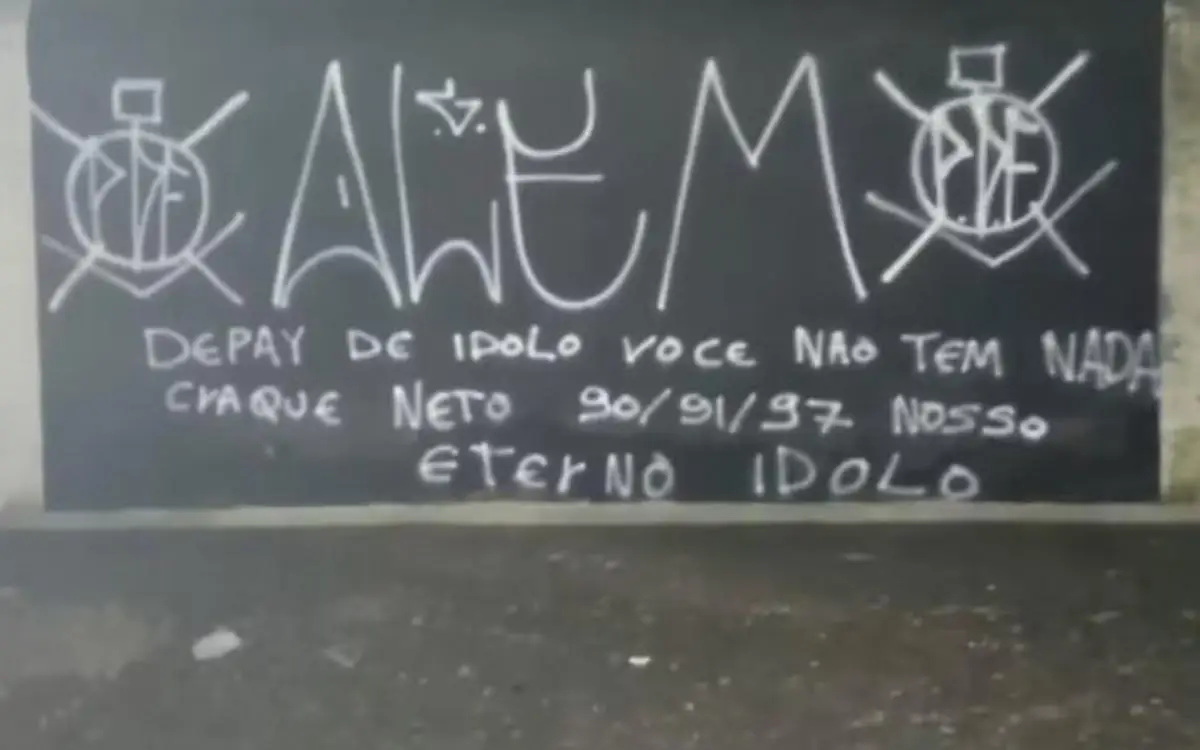 DEPAY DE IDOLO VOCE NAO TEM NADA
CRAQUE NETO 90/91/97 NOSSO
ETERNO IDOLO